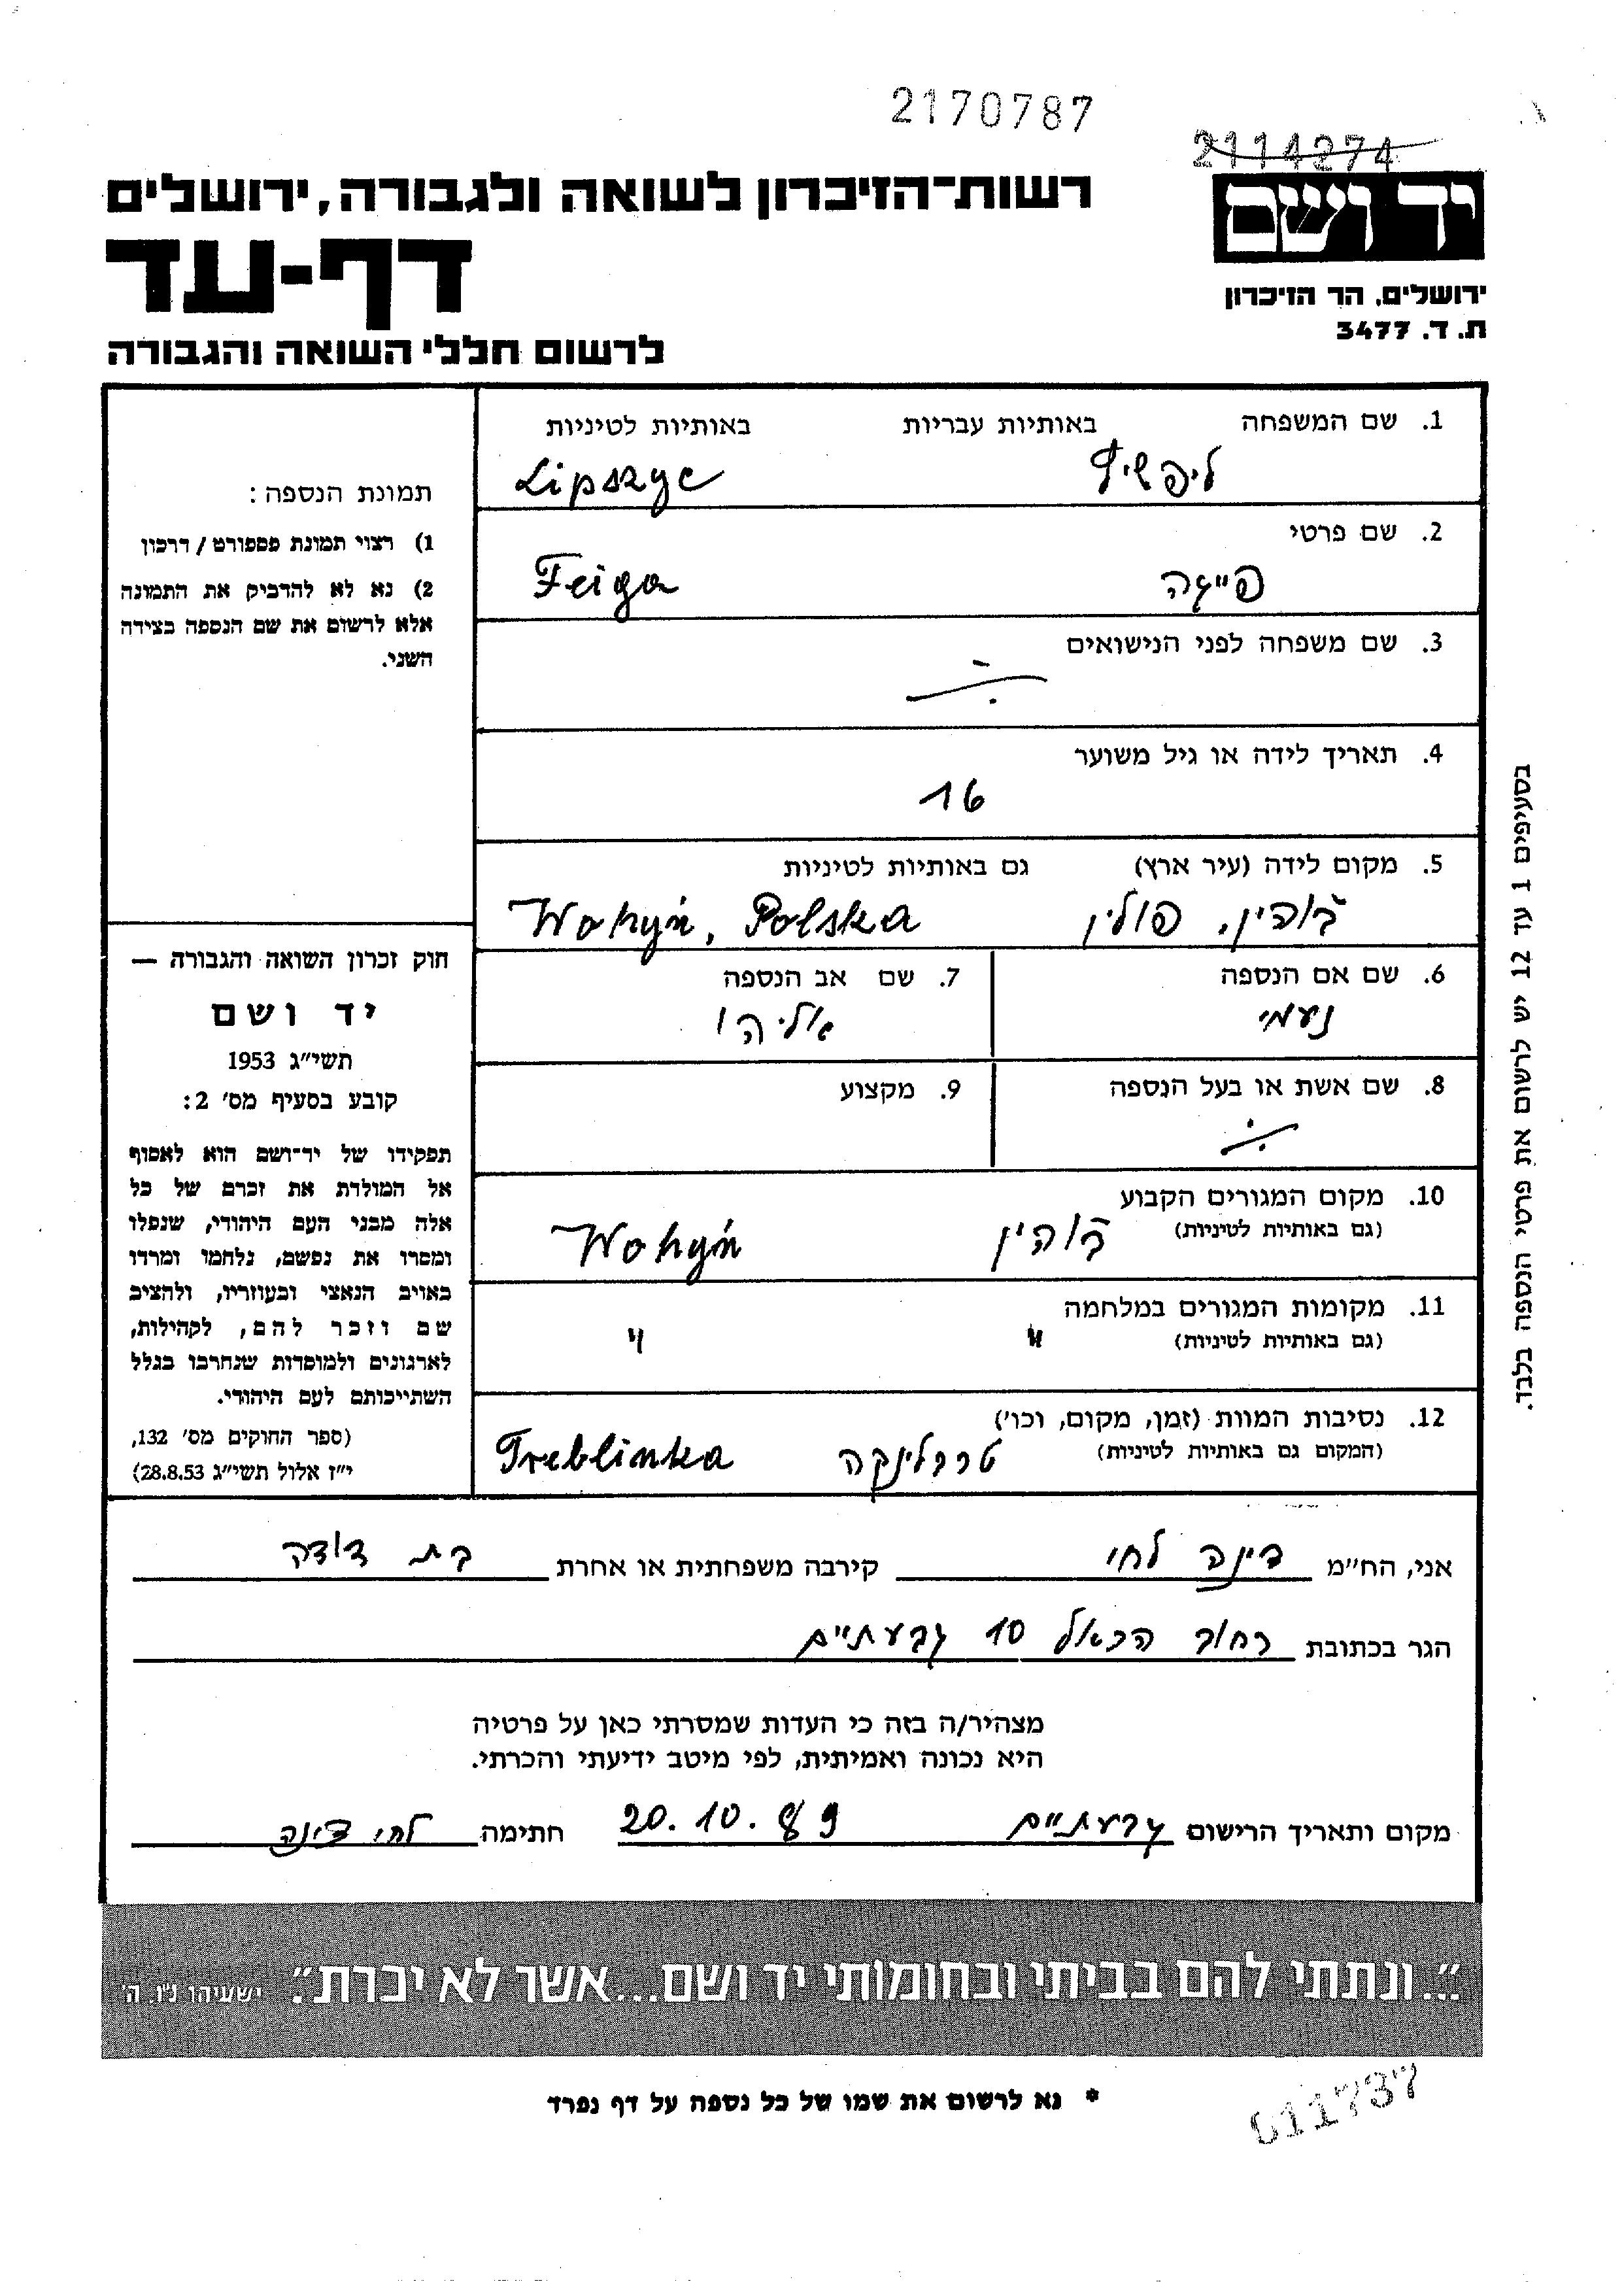 2170787
2114274
יד ושם
ירושלים, הר הזיכרון
ת. ד. 3477
רשות־הזיכרון לשואה ולגבורה, ירושלים
דף-עד
לרשום חללי השואה והגבורה
1. שם המשפחה באותיות עבריות באותיות לטיניות
ליפשיץ Lipszyc
2. שם פרטי
פייגה Feiga
3. שם משפחה לפני הנישואים
4. תאריך לידה או גיל משוער
16
5. מקום לידה (עיר ארץ) גם באותיות לטיניות
ווהין, פולין Wohyń, Polska
6. שם אם הנספה 7. שם אב הנספה
נעמי אליהו
8. שם אשת או בעל הנספה 9. מקצוע
10. מקום המגורים הקבוע
(גם באותיות לטיניות)
ווהין Wohyń
11. מקומות המגורים במלחמה
(גם באותיות לטיניות)
" "
12. נסיבות המוות (זמן, מקום, וכו')
(המקום גם באותיות לטיניות)
טרבלינקה Treblinka
תמונת הנספה:
1) רצוי תמונת פספורט/דרכון
2) נא לא להדביק את התמונה
אלא לרשום את שם הנספה בצידה
השני.
חוק זכרון השואה והגבורה —
יד ושם
תשי״ג 1953
קובע בסעיף מס׳ 2:
תפקידו של יד־ושם הוא לאסוף
אל המולדת את זכרם של כל
אלה מבני העם היהודי, שנפלו
ומסרו את נפשם, נלחמו ומרדו
באויב הנאצי ובעוזריו, ולהציב
שם וזכר להם, לקהילות,
לארגונים ולמוסדות שנחרבו בגלל
השתייכותם לעם היהודי.
(ספר החוקים מס׳ 132,
י״ז אלול תשי״ג 28.8.53)
בסעיפים 1 עד 12 יש לרשום את פרטי הנספה בלבד.
אני, הח״מ דינה לחי קירבה משפחתית או אחרת בת דודה
הגר בכתובת רחוב הראל 10 גבעתיים
מצהיר/ה בזה כי העדות שמסרתי כאן על פרטיה
היא נכונה ואמיתית, לפי מיטב ידיעתי והכרתי.
מקום ותאריך הרישום גבעתיים 20.10.89 חתימה לחי דינה
"...ונתתי להם בביתי ובחומותי יד ושם...אשר לא יכרת". ישעיהו נ״ו, ה׳
* נא לרשום את שמו של כל נספה על דף נפרד
011737